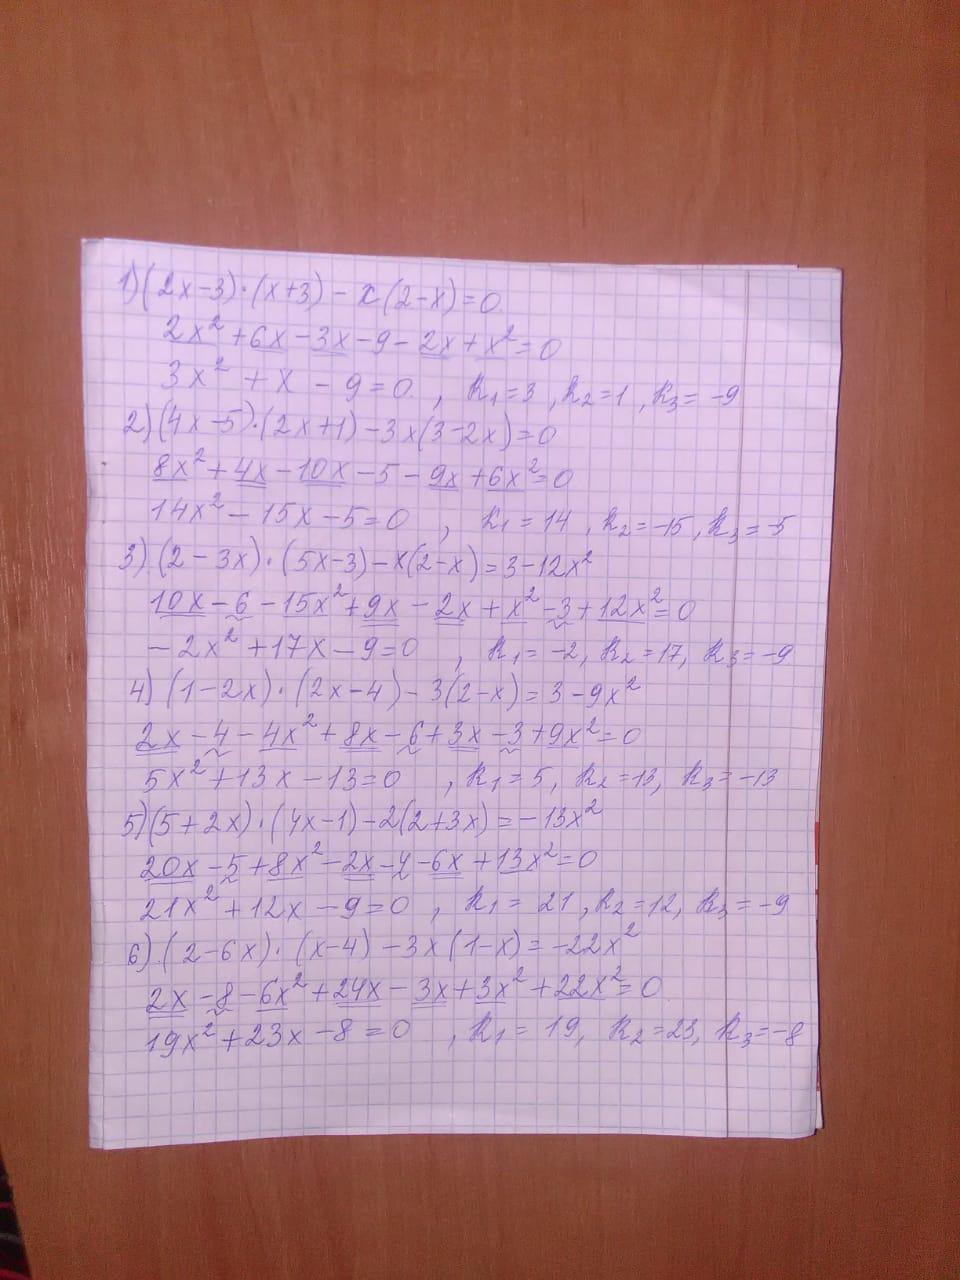 1)(2x-3)·(x+3)-x(2-x)=0.
2x²+6x-3x-9-2x+x²=0
3x²+x-9=0. , k₁=3, k₂=1, k₃=-9
2)(4x-5)·(2x+1)-3x(3-2x)=0
8x²+4x-10x-5-9x+6x²=0
14x²-15x-5=0 , k₁=14, k₂=-15, k₃=-5
3)(2-3x)·(5x-3)-x(2-x)=3-12x²
10x-6-15x²+9x-2x+x²-3+12x²=0
-2x²+17x-9=0 , k₁=-2, k₂=17, k₃=-9
4)(1-2x)·(2x-4)-3(2-x)=3-9x²
2x-4-4x²+8x-6+3x-3+9x²=0
5x²+13x-13=0 , k₁=5, k₂=13, k₃=-13
5)(5+2x)·(4x-1)-2(2+3x)=-13x²
20x-5+8x²-2x-4-6x+13x²=0
21x²+12x-9=0 , k₁=21, k₂=12, k₃=-9
6).(2-6x)·(x-4)-3x(1-x)=-22x²
2x-8-6x²+24x-3x+3x²+22x²=0
19x²+23x-8=0 , k₁=19, k₂=23, k₃=-8